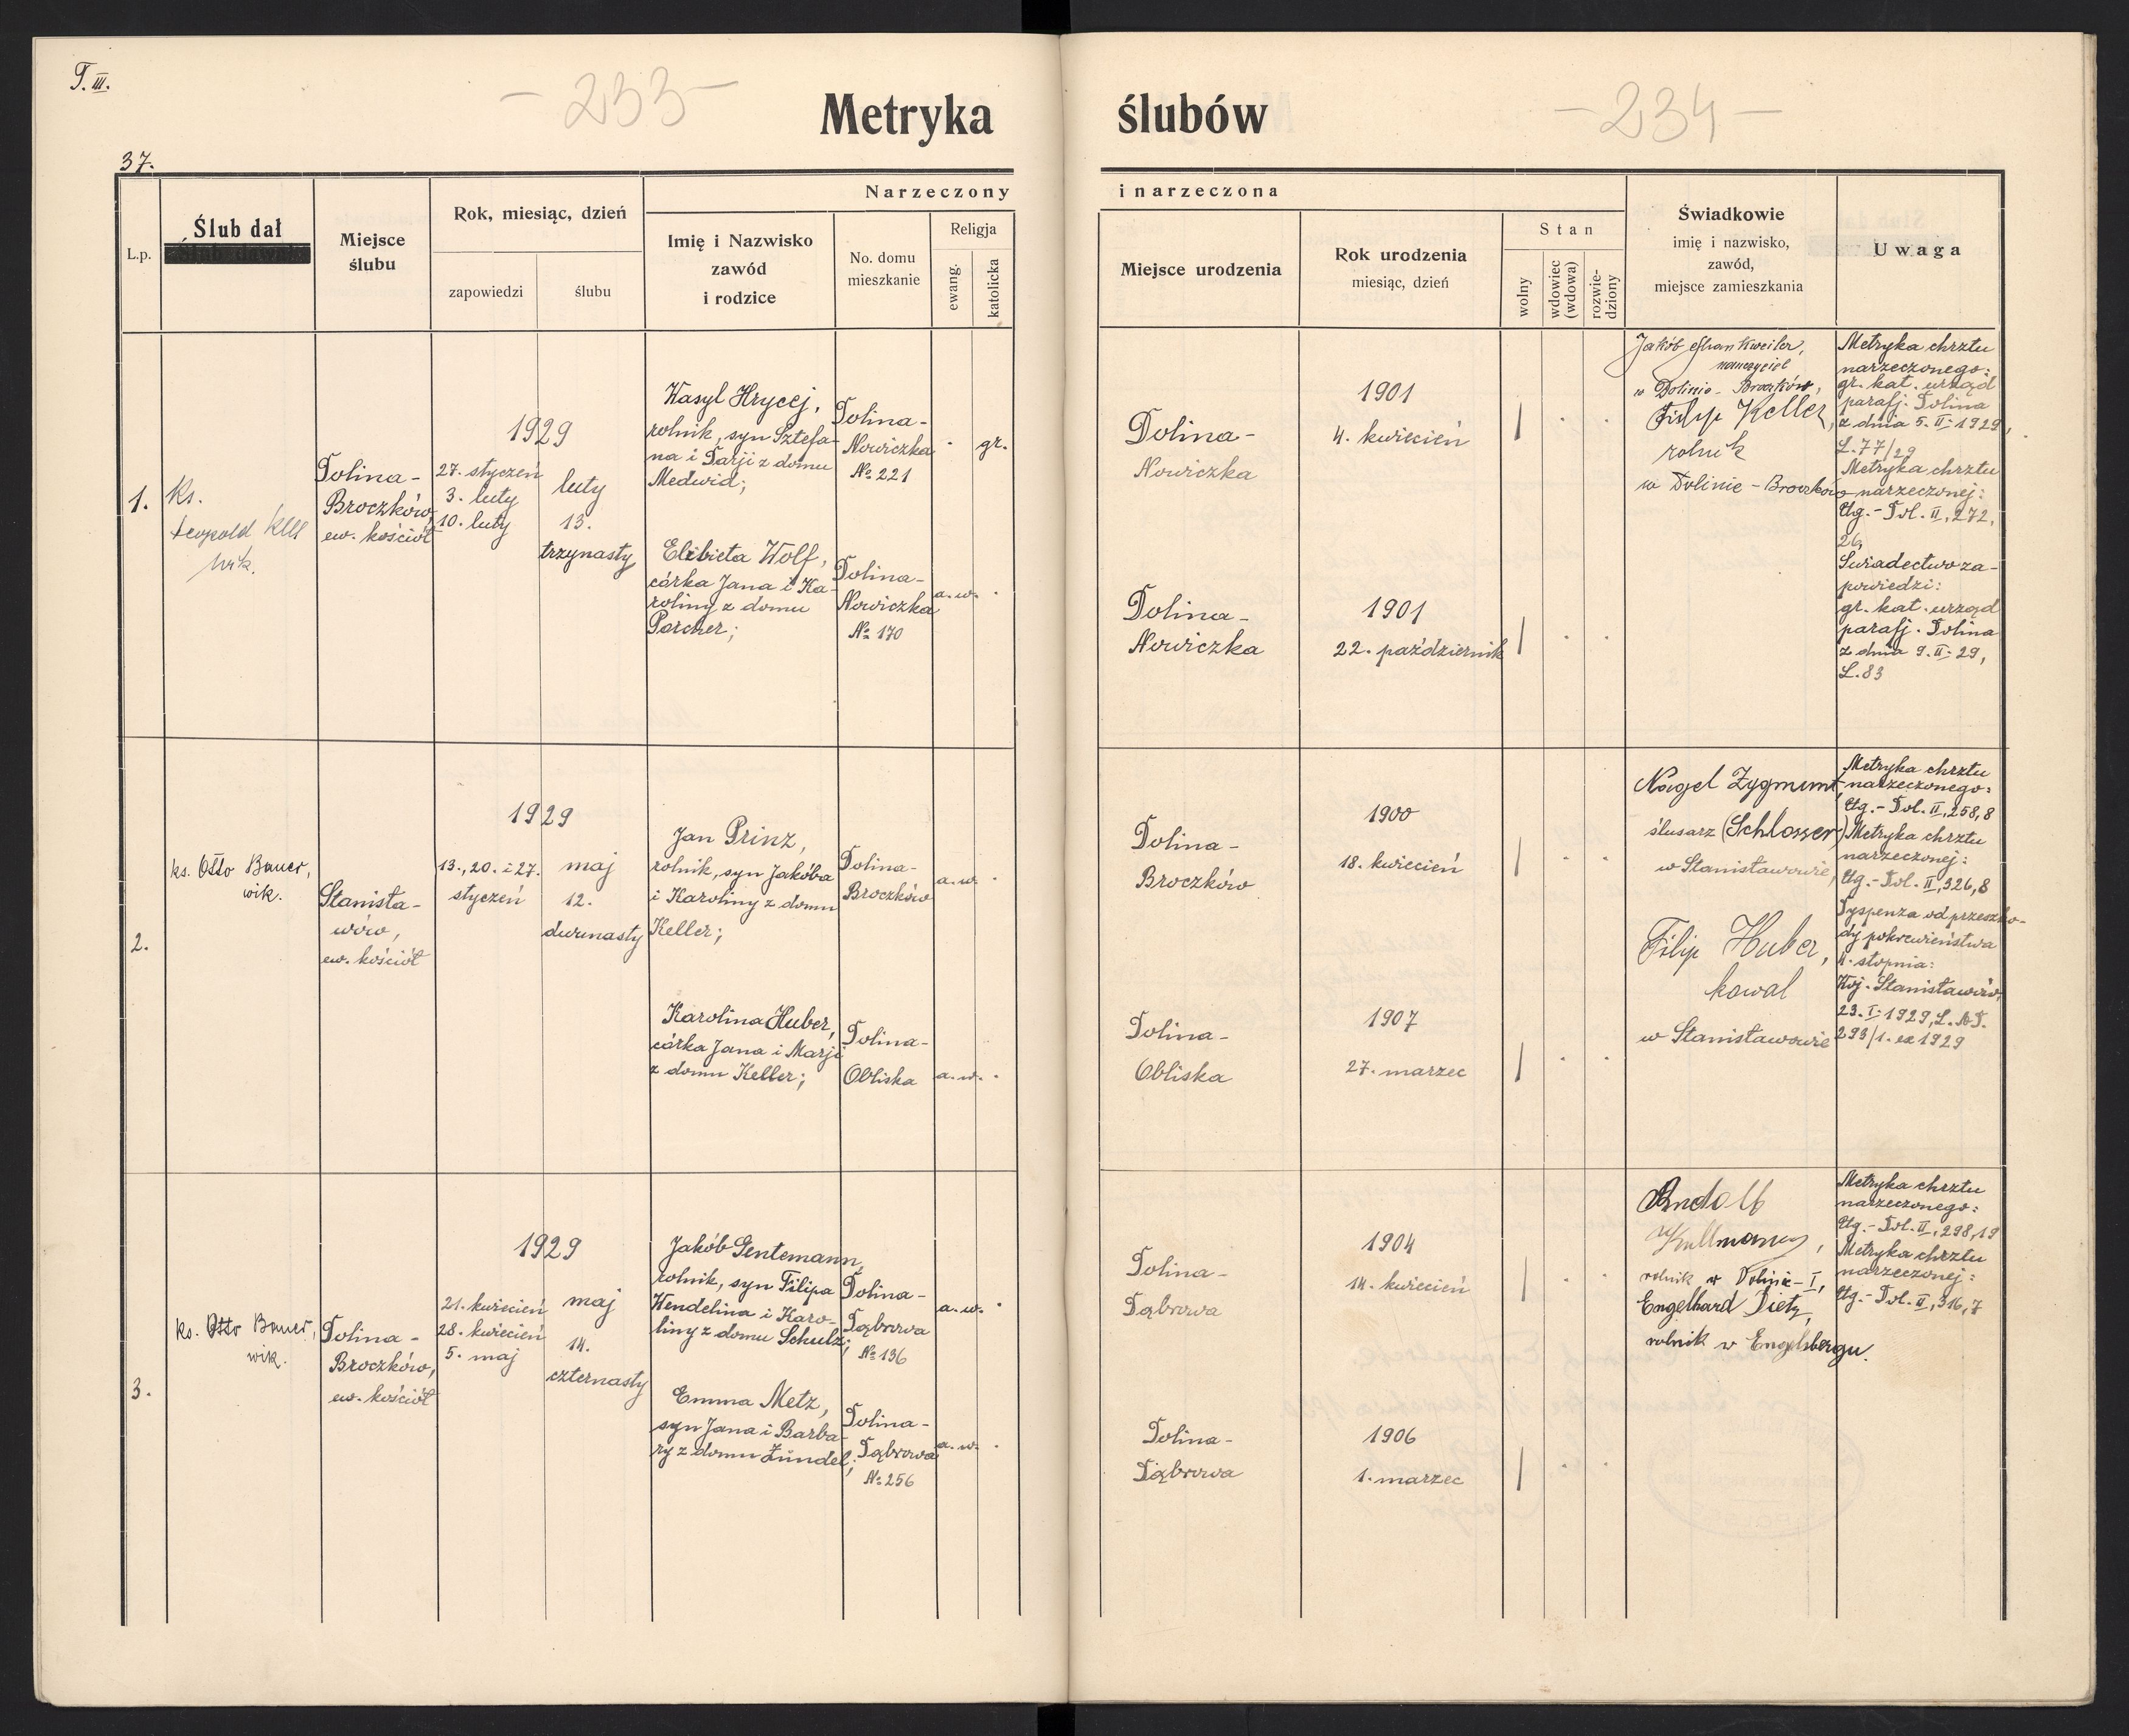 T. III.
- 233 -
Metryka
37.
L.p.
Ślub dał
Miejsce
ślubu
Rok, miesiąc, dzień
zapowiedzi
ślubu
Narzeczony
Imię i Nazwisko
zawód
i rodzice
No. domu
mieszkanie
Religja
ewang.
katolicka
1.
ks.
Leopold
wik.
Dolina-
Broczków,
ew. kościół
1929
27. styczeń
3. luty
10. luty
luty
13.
trzynasty
Wasyl Hrycej,
rolnik, syn Sztefa-
na i Darji z domu
Medwid;
Dolina-
Nowiczka
№ 221
·
gr.
Elżbieta Wolf,
córka Jana i Ka-
roliny z domu
Porcher;
Dolina-
Nowiczka
№ 170
a.w. ·
2.
ks. Otto Bauer,
wik.
Stanisła-
wów,
ew. kościół
1929
13., 20. i 27.
styczeń
maj
12.
dwunasty
Jan Prinz,
rolnik, syn Jakóba
i Karoliny z domu
Keller;
Dolina-
Broczków
a.w. ·
Karolina Huber,
córka Jana i Marji
z domu Keller;
Dolina-
Obliska
a.w. ·
3.
ks. Otto Bauer,
wik.
Dolina-
Broczków,
ew. kościół
1929
21. kwiecień
28. kwiecień
5. maj
maj
14.
czternasty
Jakób Gentemann,
rolnik, syn Filipa
Wendelina i Karo-
liny z domu Schulz;
Dolina-
Dąbrowa
№ 136
a.w. ·
Emma Metz,
syn Jana i Barba-
ry z domu Zündel;
Dolina-
Dąbrowa
№ 256
a.w. ·
- 234 -
ślubów
i narzeczona
Miejsce urodzenia
Rok urodzenia
miesiąc, dzień
Stan
wolny
wdowiec
(wdowa)
rozwie-
dziony
Świadkowie
imię i nazwisko,
zawód,
miejsce zamieszkania
Uwaga
Dolina-
Nowiczka
1901
4. kwiecień
Dolina-
Nowiczka
1901
22. październik
Jakób
nauczyciel
w Dolinie - Broczków,
Filip Keller,
rolnik
w Dolinie - Broczków
Metryka chrztu
narzeczonego:
gr. kat. urząd
parafj. Dolina
z dnia 5. II. 1929,
L. 77/29
Metryka chrztu
narzeczonej:
Ug. - Dol. II, 272,
26,
Świadectwo za-
powiedzi:
gr. kat. urząd
parafj. Dolina
z dnia 9. II. 29,
L. 83
Dolina-
Broczków
1900
18. kwiecień
Dolina-
Obliska
1907
27. marzec
Nagel Zygmunt,
ślusarz (Schlosser)
w Stanisławowie,
Filip Huber,
kowal
w Stanisławowie
Metryka chrztu
narzeczonego:
Ug. - Dol. II, 258,8
Metryka chrztu
narzeczonej:
Ug. - Dol. II, 326,8
Dyspenza od przeszko-
dy pokrewieństwa
II. stopnia:
Woj. Stanisławów,
23. I. 1929, L.
293/1. ex 1929
Dolina-
Dąbrowa
1904
14. kwiecień
Dolina-
Dąbrowa
1906
1. marzec
Rudolf
Kullmann,
rolnik w Dolinie - I,
Engelhard Dietz,
rolnik w Engelsbergu.
Metryka chrztu
narzeczonego:
Ug. - Dol. II, 298,19
Metryka chrztu
narzeczonej:
Ug. - Dol. II, 316,7